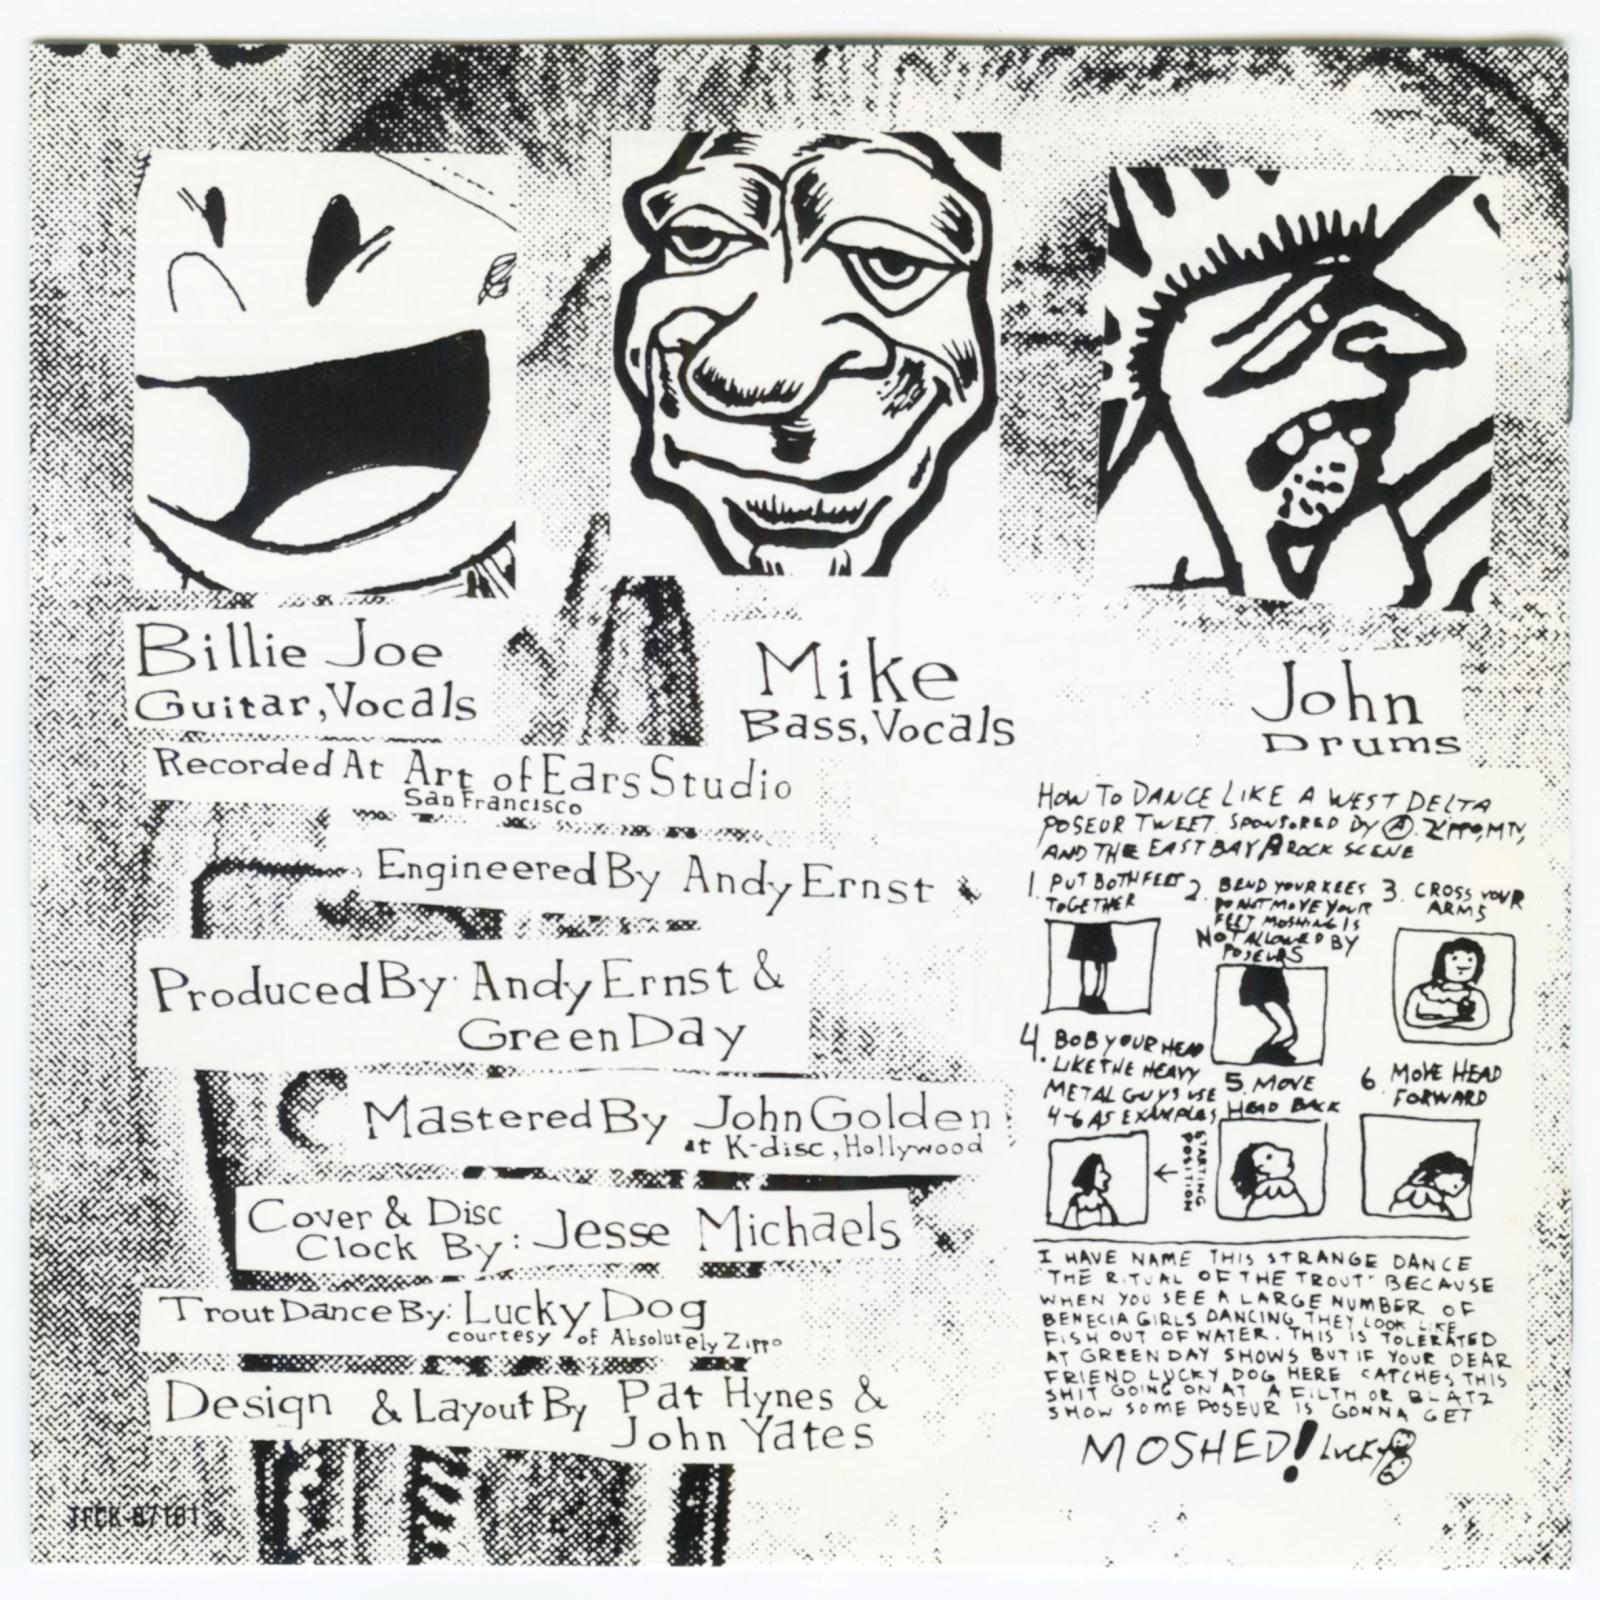 Billie Joe
Guitar, Vocals
Mike
Bass, Vocals
John
Drums
Recorded At Art of Ears Studio
San Francisco
Engineered By Andy Ernst
Produced By Andy Ernst &
Green Day
Mastered By John Golden
at K-disc, Hollywood
Cover & Disc
Clock By: Jesse Michaels
Trout Dance By: Lucky Dog
courtesy of Absolutely Zippo
Design & Layout By Pat Hynes &
John Yates
TFCK-87101
HOW TO DANCE LIKE A WEST DELTA
POSEUR TWEET. SPONSORED BY Ⓐ ZIPPO, MTV,
AND THE EAST BAY ROCK SCENE
1. PUT BOTH FEET
TOGETHER
2. BEND YOUR KEES
DO NOT MOVE YOUR
FEET MOSHING IS
NOT ALLOWED BY
POSEURS
3. CROSS YOUR
ARMS
4. BOB YOUR HEAD
LIKE THE HEAVY
METAL GUYS USE
4-6 AS EXAMPLES
5. MOVE
HEAD BACK
6 MOVE HEAD
FORWARD
← STARTING
POSITION
I HAVE NAME THIS STRANGE DANCE
"THE RITUAL OF THE TROUT" BECAUSE
WHEN YOU SEE A LARGE NUMBER OF
BENECIA GIRLS DANCING THEY LOOK LIKE
FISH OUT OF WATER. THIS IS TOLERATED
AT GREEN DAY SHOWS BUT IF YOUR DEAR
FRIEND LUCKY DOG HERE CATCHES THIS
SHIT GOING ON AT A FILTH OR BLATZ
SHOW SOME POSEUR IS GONNA GET
MOSHED! LUCKY